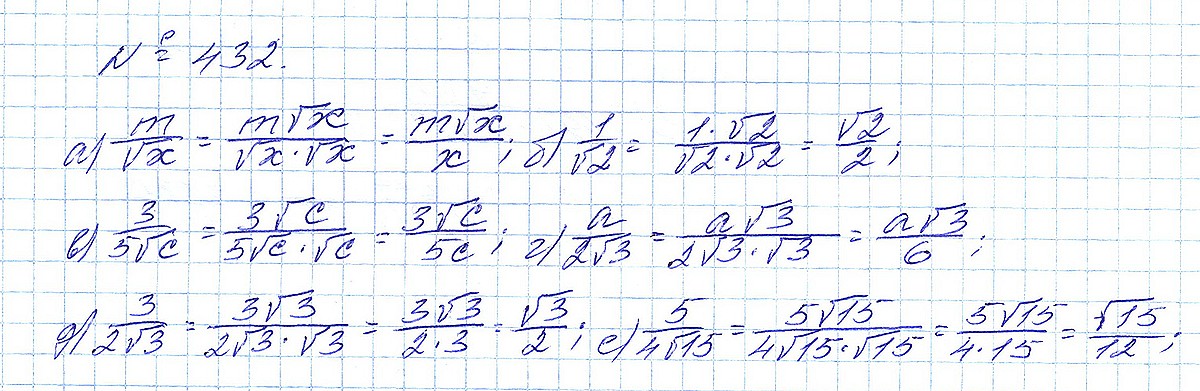 № 432.
а) m/√x = m√x/√x·√x = m√x/x; б) 1/√2 = 1·√2/√2·√2 = √2/2;
в) 3/5√c = 3√c/5√c·√c = 3√c/5c; г) a/2√3 = a√3/2√3·√3 = a√3/6;
д) 3/2√3 = 3√3/2√3·√3 = 3√3/2·3 = √3/2; е) 5/4√15 = 5√15/4√15·√15 = 5√15/4·15 = √15/12;